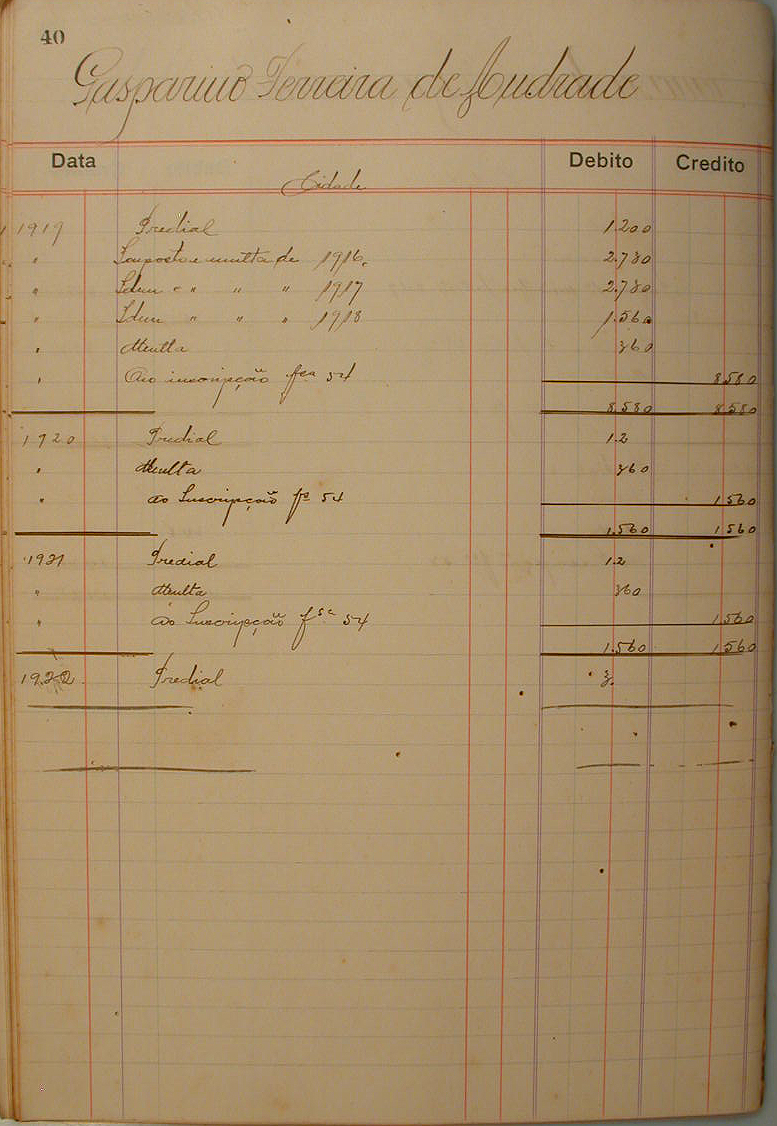 40
Gasparino Ferreira de Andrade
Data Debito Credito
Cidade
1919 Predial 1.200
" Imposto e multa de 1916. 2.730
" Idem " " " " 1917 2.730
" Idem " " " 1918 1.560
" Multa 360
" Ao inscripção 54 8580
8.580 8580
1920 Predial 1.2
" Multa 360
" ao Inscripção fs 54 1560
1.560 1560
1921 Predial 1.2
" Multa 360
" ao Inscripção 54 1.560
1.560 1560
1922 Predial 3.